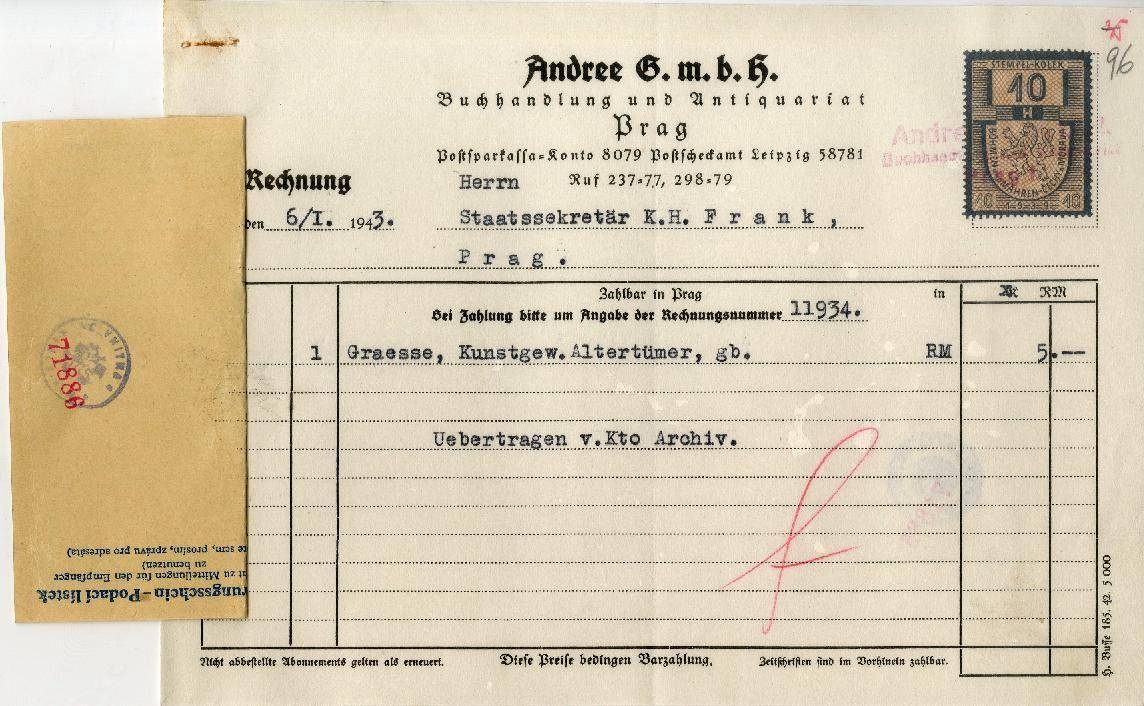 96
Andree G. m. b. H.
Buchhandlung und Antiquariat
Prag
Postsparkassa-Konto 8079 Postscheckamt Leipzig 58781
Ruf 237-77, 298-79
STEMPEL-KOLEK
10
H
Andre
Rechnung
Herrn
den 6/I. 1943.
Staatssekretär K.H. Frank,
Prag.
Zahlbar in Prag in K RM
Bei Zahlung bitte um Angabe der Rechnungsnummer 11934.
1 Graesse, Kunstgew.Altertümer, gb. RM 5.--
Uebertragen v.Kto Archiv.
Nicht abbestellte Abonnements gelten als erneuert. Diese Preise bedingen Barzahlung. Zeitschriften sind im Vorhinein zahlbar.
H. Busse 185. 42. 5.000
71886
rungsschein-Podací lístek
t zu Mitteilungen für den Empfänger
zu benutzen)
te sem, prosím, zprávu pro adresáta)